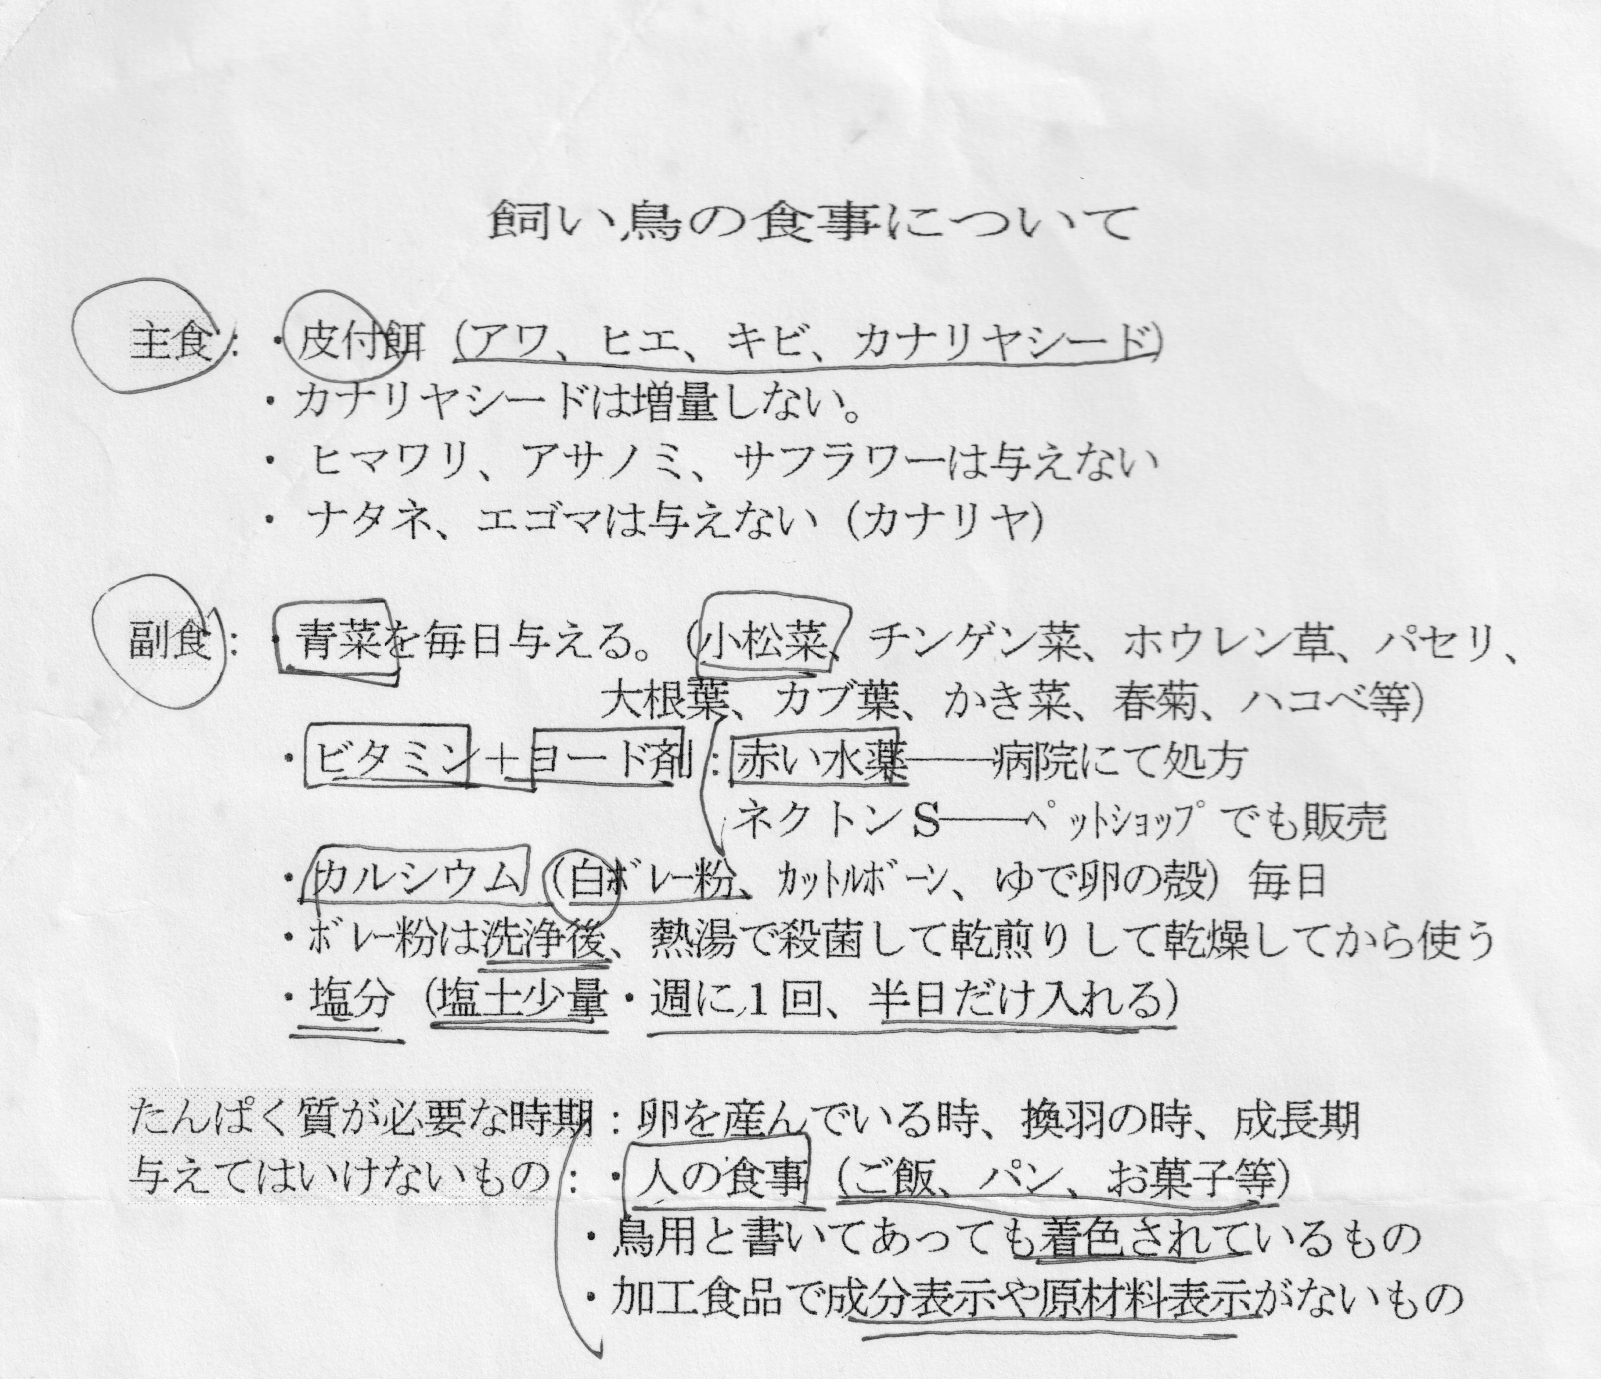 飼い鳥の食事について
主食：・皮付餌（アワ、ヒエ、キビ、カナリヤシード）
・カナリヤシードは増量しない。
・ヒマワリ、アサノミ、サフラワーは与えない
・ナタネ、エゴマは与えない（カナリヤ）
副食：・青菜を毎日与える。（小松菜、チンゲン菜、ホウレン草、パセリ、
大根葉、カブ葉、かき菜、春菊、ハコベ等）
・ビタミン＋ヨード剤：赤い水薬――病院にて処方
ネクトンS――ﾍﾟｯﾄｼｮｯﾌﾟでも販売
・カルシウム（白ﾎﾞﾚｰ粉、ｶｯﾄﾙﾎﾞｰﾝ、ゆで卵の殻）毎日
・ﾎﾞﾚｰ粉は洗浄後、熱湯で殺菌して乾煎りして乾燥してから使う
・塩分（塩土少量・週に1回、半日だけ入れる）
たんぱく質が必要な時期：卵を産んでいる時、換羽の時、成長期
与えてはいけないもの：・人の食事（ご飯、パン、お菓子等）
・鳥用と書いてあっても着色されているもの
・加工食品で成分表示や原材料表示がないもの